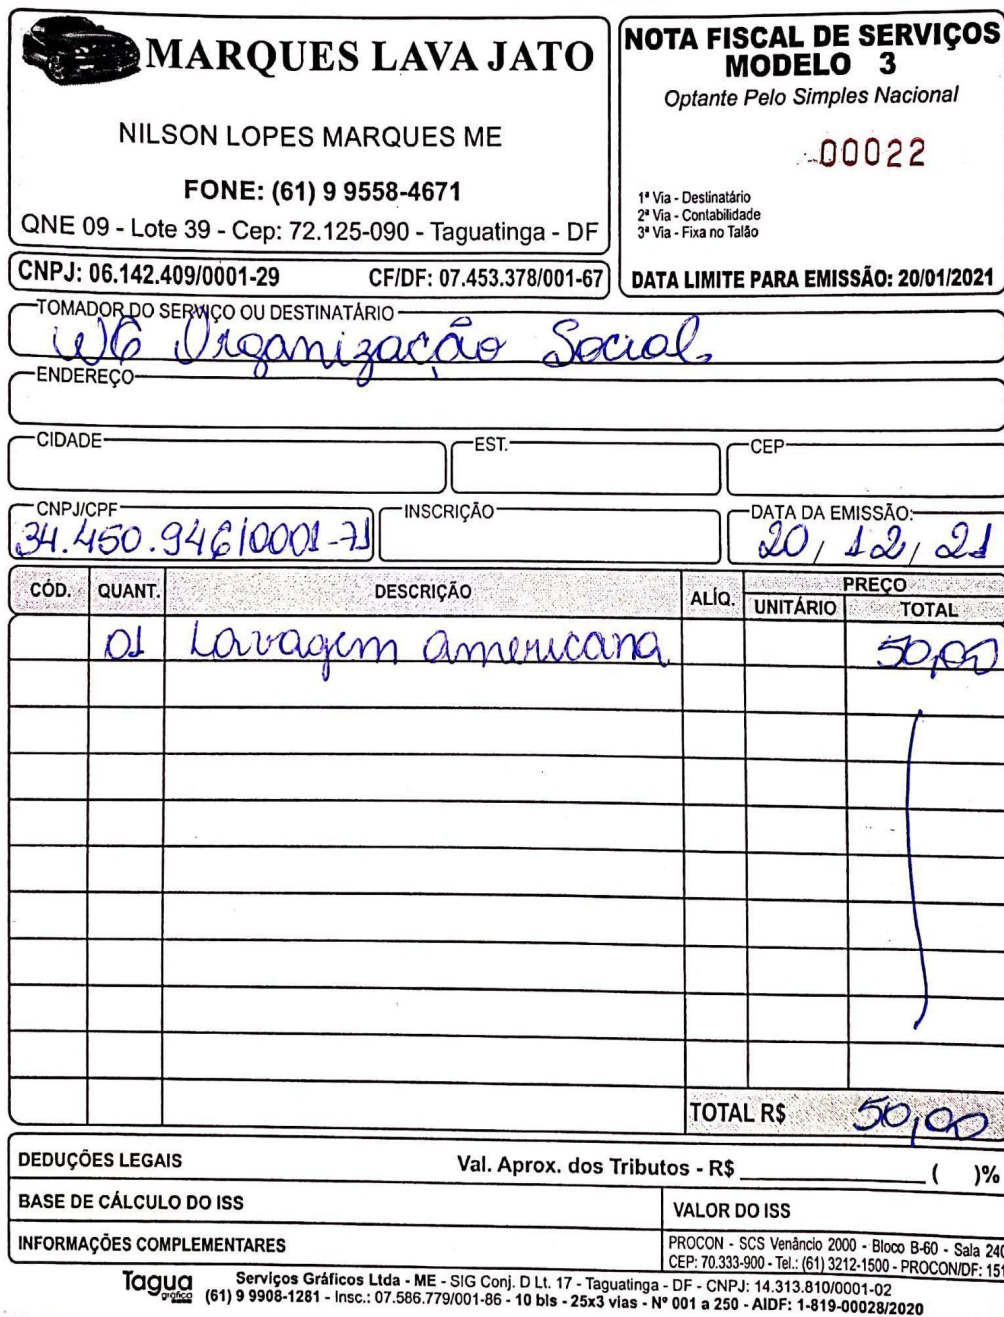 MARQUES LAVA JATO
NILSON LOPES MARQUES ME
FONE: (61) 9 9558-4671
QNE 09 - Lote 39 - Cep: 72.125-090 - Taguatinga - DF
CNPJ: 06.142.409/0001-29 CF/DF: 07.453.378/001-67
NOTA FISCAL DE SERVIÇOS
MODELO 3
Optante Pelo Simples Nacional
00022
1ª Via - Destinatário
2ª Via - Contabilidade
3ª Via - Fixa no Talão
DATA LIMITE PARA EMISSÃO: 20/01/2021
TOMADOR DO SERVIÇO OU DESTINATÁRIO
W6 Organização Social
ENDEREÇO
CIDADE EST. CEP
CNPJ/CPF INSCRIÇÃO DATA DA EMISSÃO:
34.450.946/0001-71 20/12/21
CÓD. QUANT. DESCRIÇÃO ALÍQ. PREÇO
UNITÁRIO TOTAL
01 Lavagem americana 50,00
TOTAL R$ 50,00
DEDUÇÕES LEGAIS Val. Aprox. dos Tributos - R$ ( )%
BASE DE CÁLCULO DO ISS VALOR DO ISS
INFORMAÇÕES COMPLEMENTARES PROCON - SCS Venâncio 2000 - Bloco B-60 - Sala 240
CEP: 70.333-900 - Tel.: (61) 3212-1500 - PROCON/DF: 151
Tagua gráfica Serviços Gráficos Ltda - ME - SIG Conj. D Lt. 17 - Taguatinga - DF - CNPJ: 14.313.810/0001-02
(61) 9 9908-1281 - Insc.: 07.586.779/001-86 - 10 bls - 25x3 vias - Nº 001 a 250 - AIDF: 1-819-00028/2020